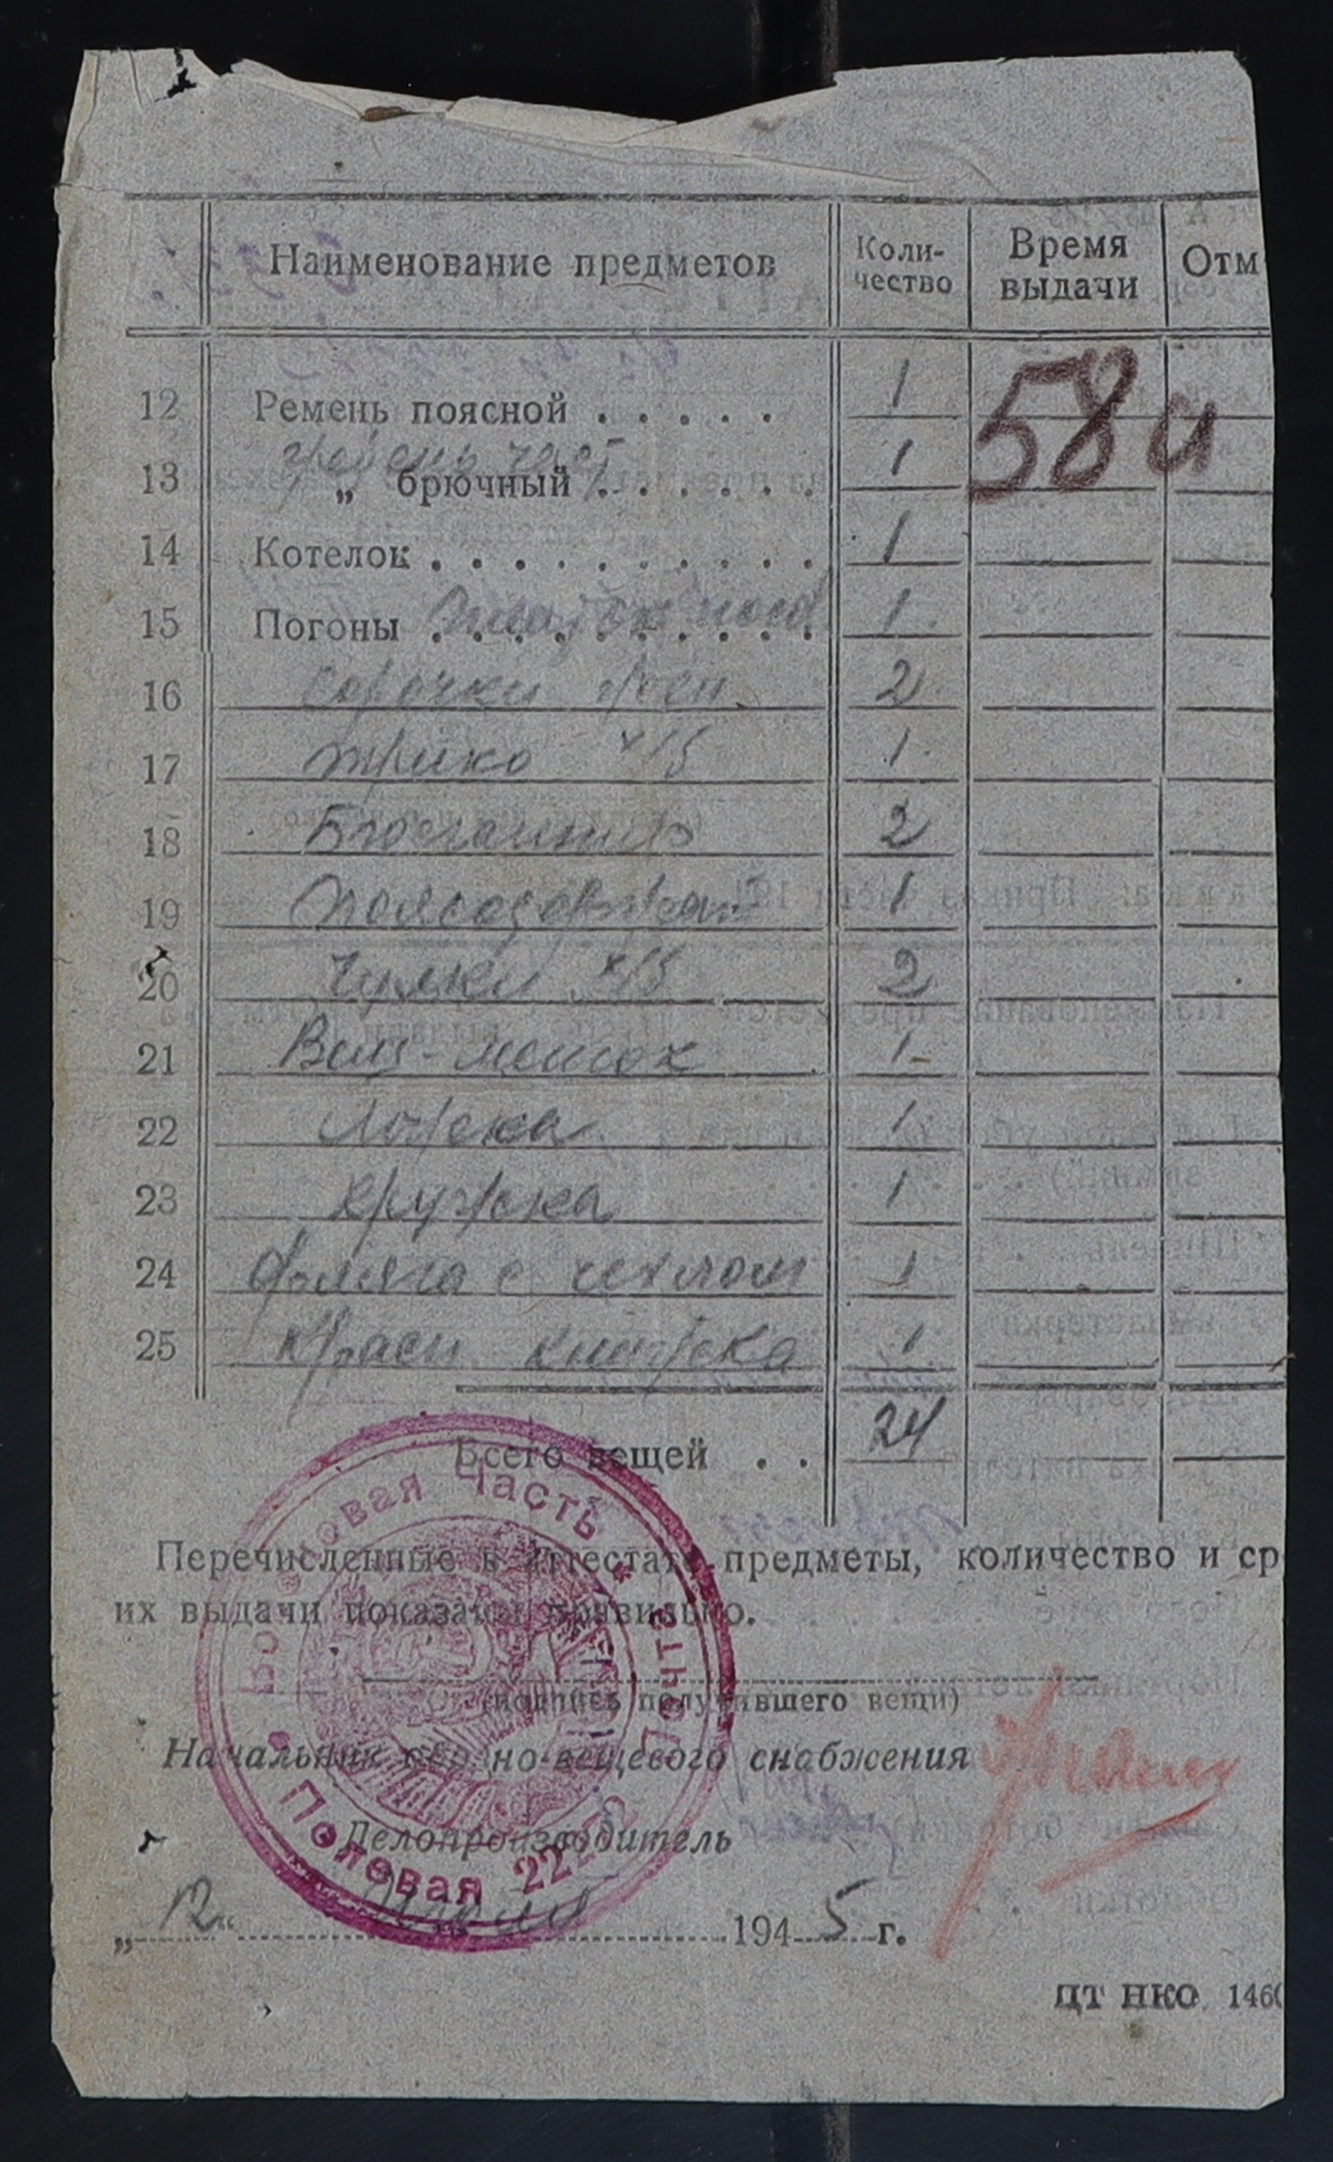 Наименование предметов Коли-чество Время выдачи Отм
58 а
12 Ремень поясной . . . . . 1
гребень част
13 „ брючный . . . . . . 1
14 Котелок . . . . . . . . . . 1
15 Погоны платок носов 1
16 сорочки жен. 2
17 трико х/б 1
18 Бюсгалтер 2
19 Поясодержат 1
20 Чулки х/б 2
21 Вещ-мешок 1
22 Ложка 1
23 Кружка 1
24 Фляга с чехлом 1
25 Красн книжка 1
Всего вещей . . 24
Перечисленные в аттестате предметы, количество и ср
их выдачи показаны правильно.
(подпись получившего вещи)
Начальник обозно-вещевого снабжения
Делопроизводитель
„12“ Июля 1945 г.
ЦТ НКО. 1460
Войсковая Часть
Полевая Почта